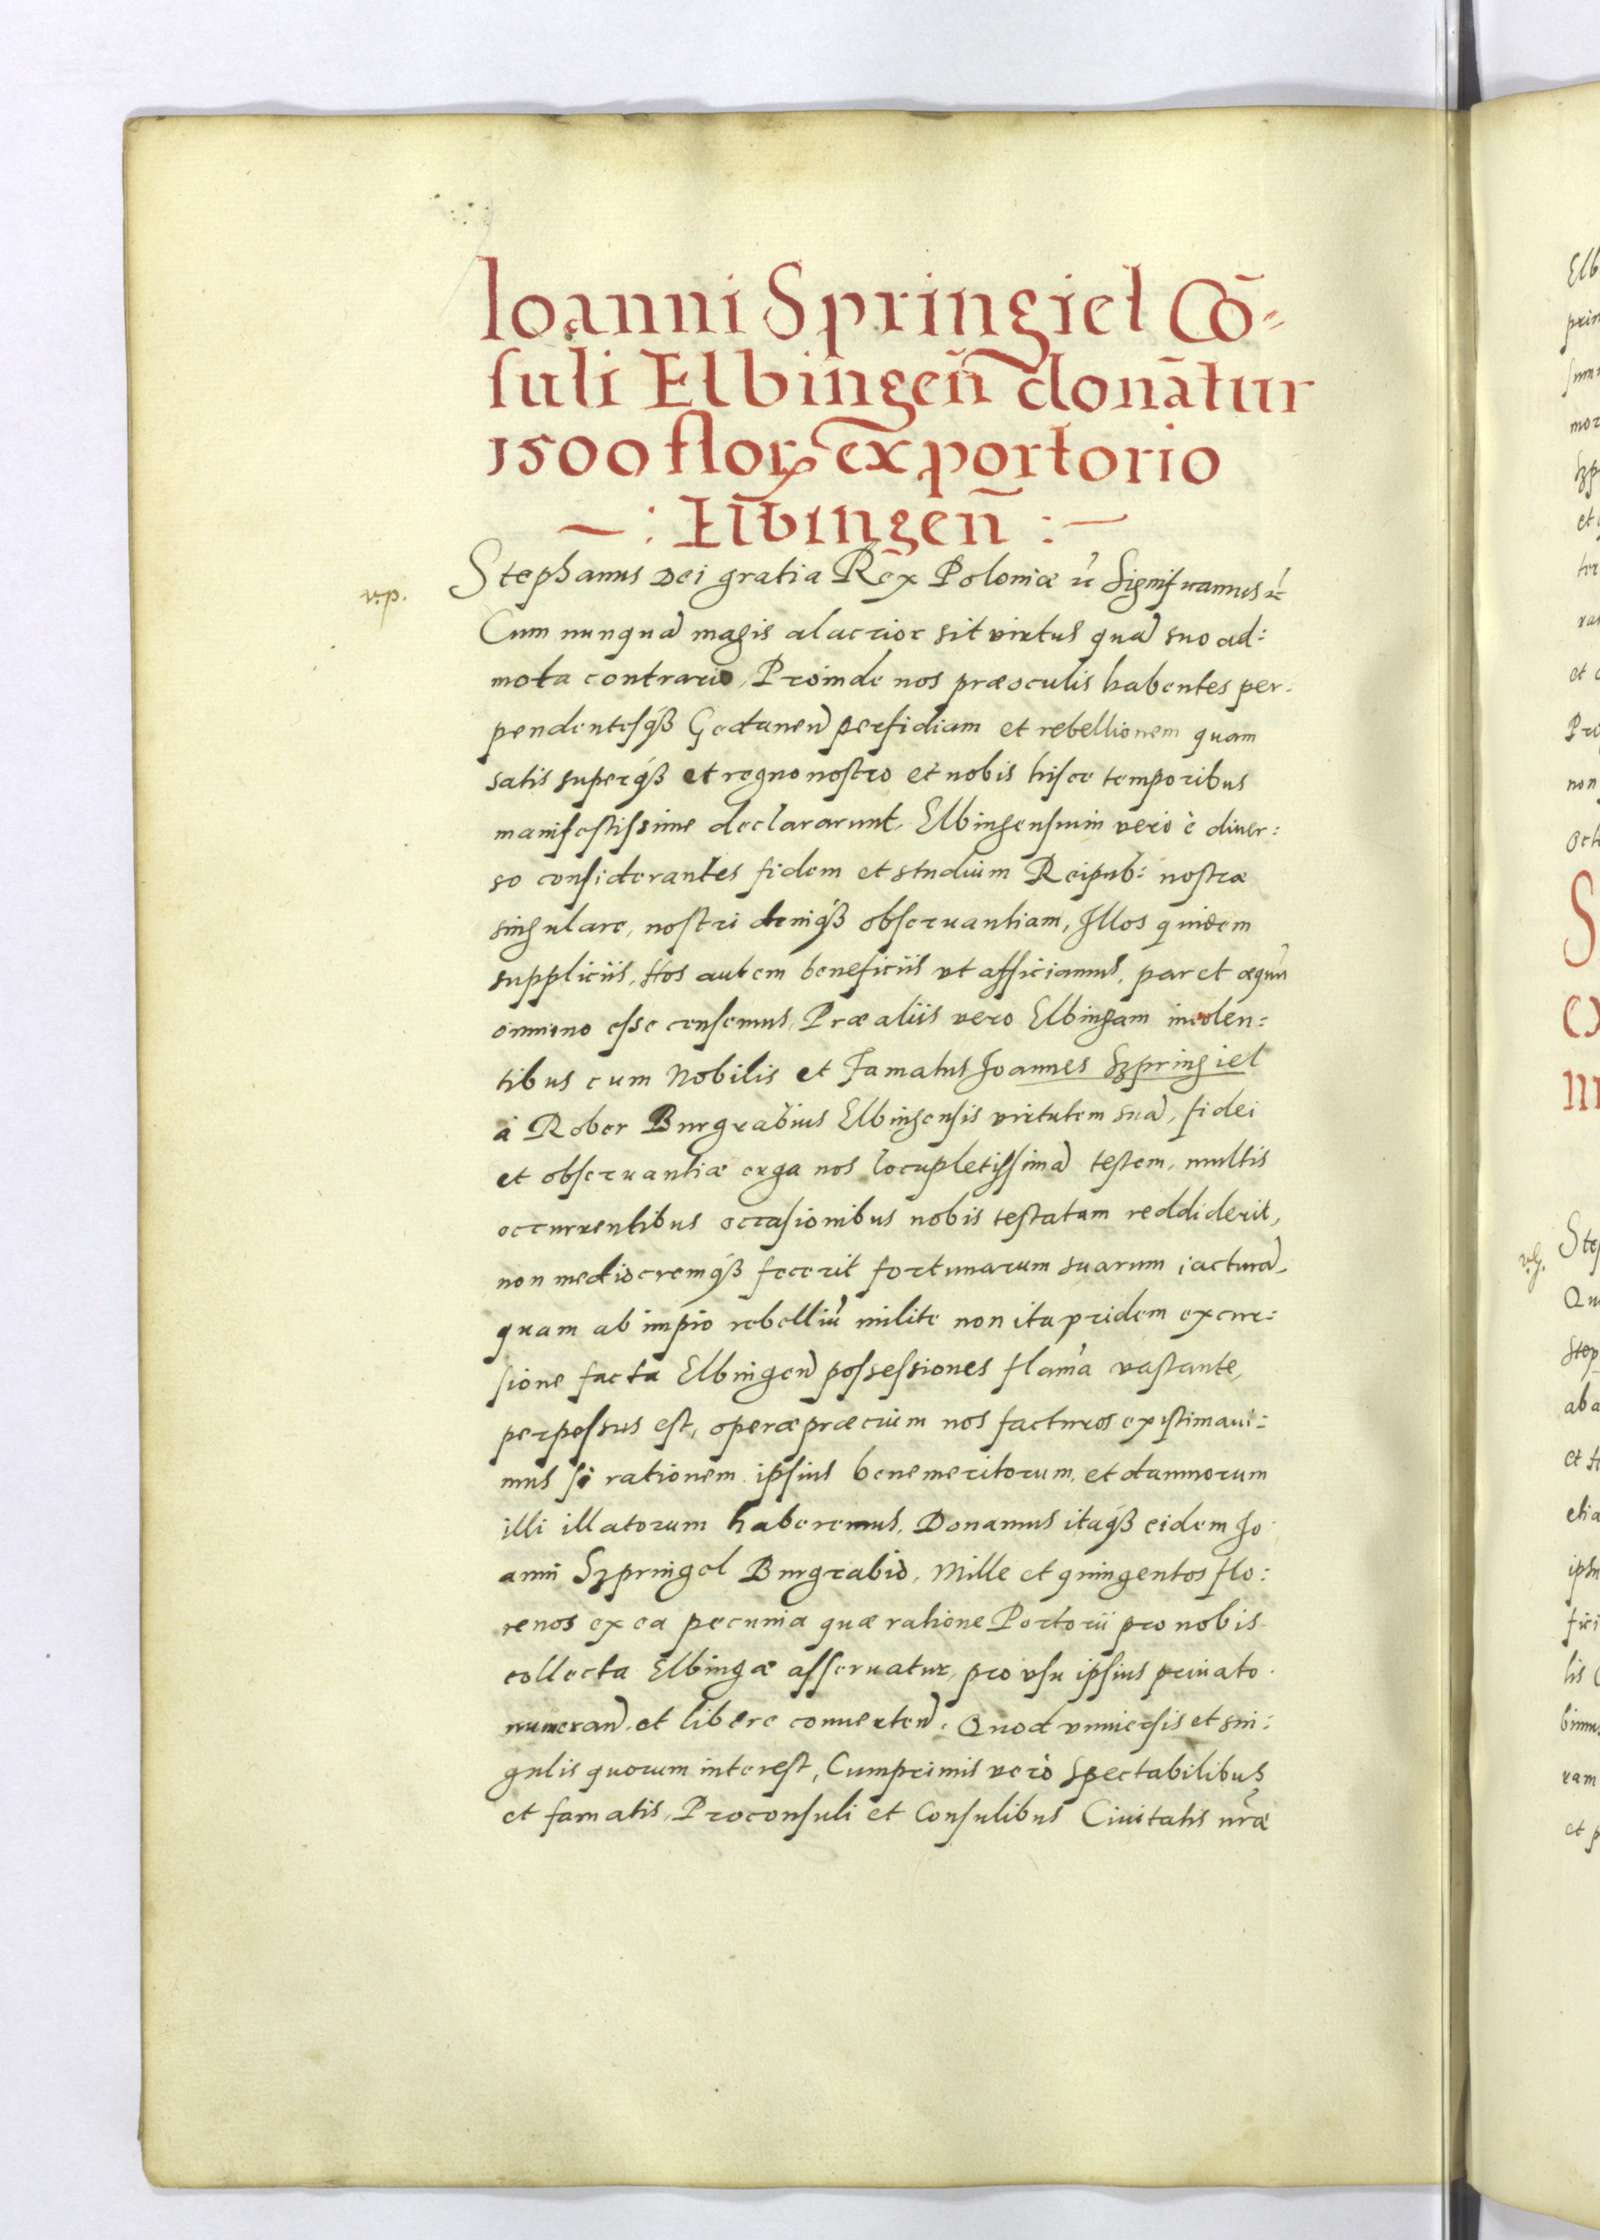 Ioanni Springiel Cō=
suli Elbingeñ donātur
1500 floꝝ ex portorio
: Elbingeñ :
v.p.
Stephanus Dei gratia Rex Poloniæ ꝛc̄ Significamus ꝛc̄
Cum nunquā magis alacrior sit virtus quā suo ad:
mota contrario, Proinde nos præoculis habentes per:
pendentesqꝫ Gedaneñ perfidiam et rebellionem quam
satis superqꝫ et regno nostro et nobis hisce temporibus
manifestissime declararunt, Elbingensium vero è diuer:
so considerantes fidem et studium Reipub: nostræ
singulare, nostri deniqꝫ obseruantiam, Illos quidem
suppliciis, Hos autem beneficiis vt afficiamus, par et æquū
omnino esse censemus, Præ aliis vero Elbingam incolen:
tibus cum Nobilis et Famatus Joannes Szpringiel
à Rober Burgrabius Elbingensis virtutem suā, fidei
et obseruantiæ erga nos locupletissimā testem, multis
occurrentibus occasionibus nobis testatam reddiderit,
non mediocremqꝫ fecerit fortunarum suarum iacturā,
quam ab impio rebelliū milite non ita pridem excur:
sione facta Elbingeñ possessiones flam̄a vastante,
perpessus est, operæpræcium nos facturos existimaui:
mus si rationem ipsius benemeritorum, et damnorum
illi illatorum haberemus, Donamus itaqꝫ eidem Jo
anni Szpringel Burgrabio, Mille et quingentos flo:
renos ex ea pecunia quæ ratione Portorii pro nobis
collecta Elbingæ asseruatur, pro vsu ipsius priuato
numerañ, et libere conuerteñ. Quod vniuersis et sin:
gulis quorum interest, Cumprimis verò Spectabilibus
et famatis, Proconsuli et Consulibus Ciuitatis nr̄æ